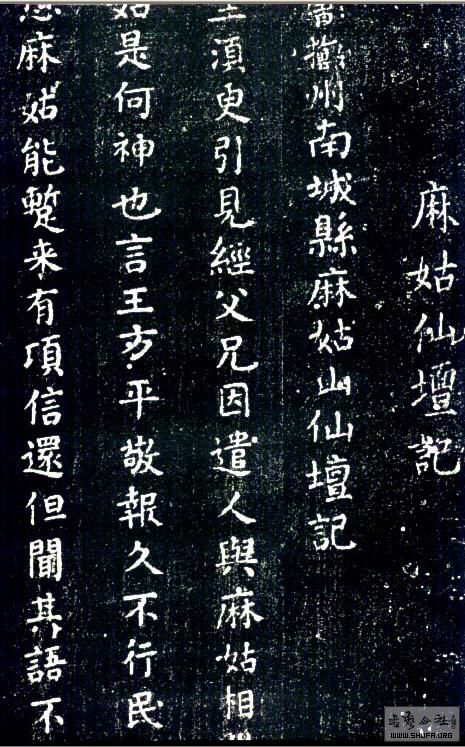 麻姑仙壇記
撫州南城縣麻姑山仙壇記
湏臾引見經父兄因遣人與麻姑相
是何神也言王方平敬報久不行民
麻姑能蹔来有頃信還但聞其語不
WWW.SHUFA.ORG